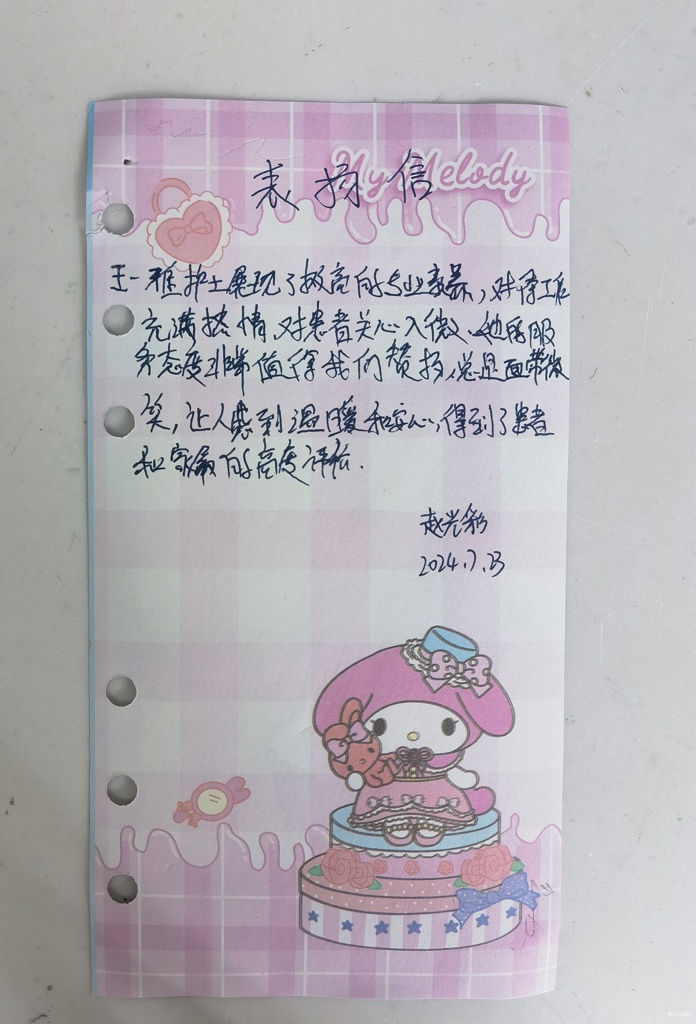 My Melody
表扬信
王一雅护士展现了极高的专业素养,对待工作
充满热情,对患者关心入微、她的服
务态度非常值得我们赞扬,总是面带微
笑,让人感到温暖和安心,得到了患者
和家属的高度评价.
赵光彩
2024.7.13